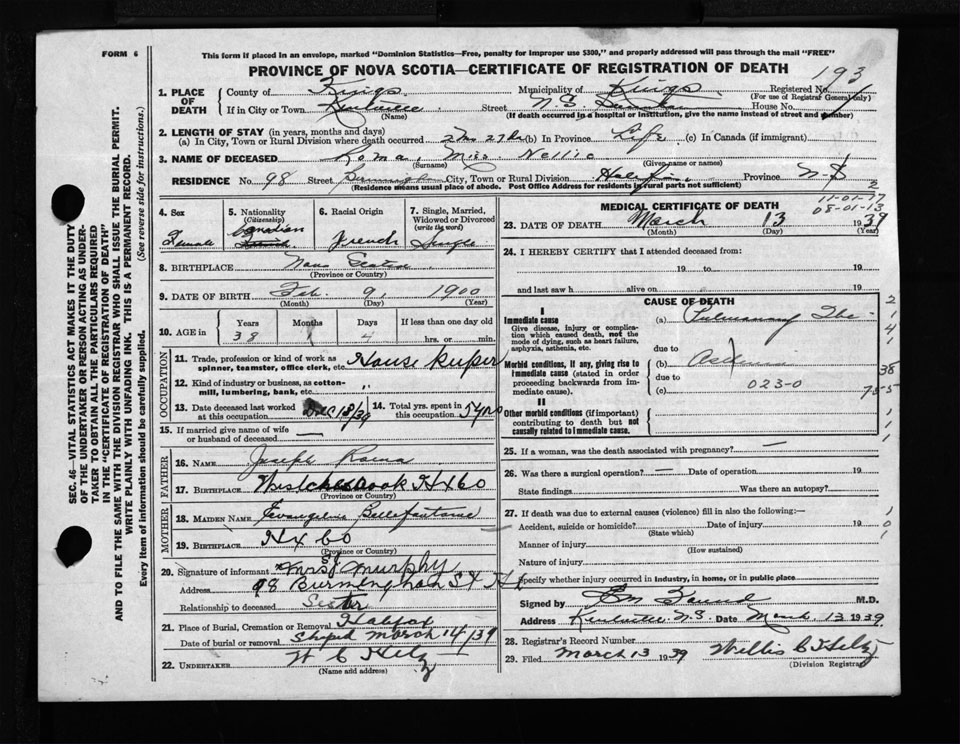 FORM 6
This form if placed in an envelope, marked "Dominion Statistics—Free, penalty for improper use $300," and properly addressed will pass through the mail "FREE"
PROVINCE OF NOVA SCOTIA—CERTIFICATE OF REGISTRATION OF DEATH
193
1. PLACE OF DEATH
County of Kings Municipality of Kings Registered No.
(For use of Registrar General only)
If in City or Town Kentville Street N.S. House No.
(Name) (If death occurred in a hospital or institution, give the name instead of street and number)
2. LENGTH OF STAY (in years, months and days)
(a) In City, Town or Rural Division where death occurred 2 mo 27 da (b) In Province Life (c) In Canada (if immigrant)
3. NAME OF DECEASED Roma, Miss Nellie
(Surname) (Given name or names)
RESIDENCE No. 98 Street City, Town or Rural Division Halifax Province N-S
(Residence means usual place of abode. Post Office Address for residents in rural parts not sufficient)
SEC. 46—VITAL STATISTICS ACT MAKES IT THE DUTY
OF THE UNDERTAKER OR PERSON ACTING AS UNDER-
TAKER TO OBTAIN ALL THE PARTICULARS REQUIRED
IN THE "CERTIFICATE OF REGISTRATION OF DEATH"
AND TO FILE THE SAME WITH THE DIVISION REGISTRAR WHO SHALL ISSUE THE BURIAL PERMIT.
WRITE PLAINLY WITH UNFADING INK. THIS IS A PERMANENT RECORD.
Every item of information should be carefully supplied. (See reverse side for instructions.)
4. Sex
Female
5. Nationality
(Citizenship)
Canadian
6. Racial Origin
French
7. Single, Married, Widowed or Divorced
(write the word)
Single
8. BIRTHPLACE Nova Scotia
(Province or Country)
9. DATE OF BIRTH Feb. 9, 1900
(Month) (Day) (Year)
10. AGE in
Years Months Days If less than one day old
38 1 4 hrs. or min.
OCCUPATION
11. Trade, profession or kind of work as
spinner, teamster, office clerk, etc. House keeper
12. Kind of industry or business, as cotton-
mill, lumbering, bank, etc. "
13. Date deceased last worked
at this occupation Dec 18/39
14. Total yrs. spent in
this occupation 5 yrs
15. If married give name of wife
or husband of deceased —
FATHER
16. NAME Joseph Roma
17. BIRTHPLACE West Chezzetcook Hx Co
(Province or Country)
MOTHER
18. MAIDEN NAME Evangeline Bellefontaine
19. BIRTHPLACE Hx Co
(Province or Country)
20. Signature of informant Mrs J Murphy
Address 98 Burmingham St Hx
Relationship to deceased Sister
21. Place of Burial, Cremation or Removal Halifax
Date of burial or removal Shiped March 14/39
22. UNDERTAKER W C Hiltz
(Name and address)
MEDICAL CERTIFICATE OF DEATH
2
11-01-77
08-01-13
23. DATE OF DEATH March 13 1939
(Month) (Day) (Year)
24. I HEREBY CERTIFY that I attended deceased from:
19 to 19
and last saw h alive on 19
CAUSE OF DEATH
I
Immediate cause
Give disease, injury or complica-
tion which caused death, not the
mode of dying, such as heart failure,
asphyxia, asthenia, etc.
(a) Pulmonary Tbc
due to
Morbid conditions, if any, giving rise to
immediate cause (stated in order
proceeding backwards from im-
mediate cause).
(b)
due to
(c) 023-0
II
Other morbid conditions (if important)
contributing to death but not
causally related to immediate cause.
2
1
4
1
38
755
1
1
1
25. If a woman, was the death associated with pregnancy? —
26. Was there a surgical operation? — Date of operation 19
State findings Was there an autopsy?
27. If death was due to external causes (violence) fill in also the following:—
Accident, suicide or homicide? Date of injury 19
(State which)
Manner of injury
(How sustained)
Nature of injury
Specify whether injury occurred in industry, in home, or in public place
1
0
1
Signed by M.D.
Address Kentville N.S. Date March 13 1939
28. Registrar's Record Number
29. Filed March 13 1939 Willis C Hiltz
(Division Registrar)